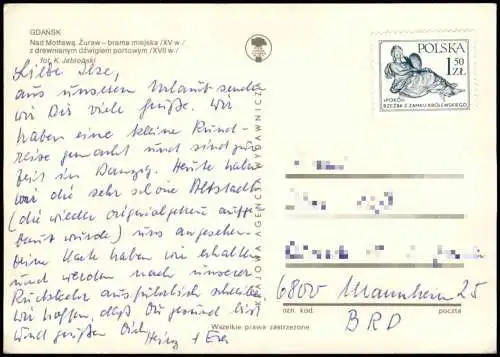 GDAŃSK
Nad Motławą. Żuraw – brama miejska /XV w./
z drewnianym dźwigiem portowym /XVII w./
fot. K. Jabłoński
Liebe Ilse,
aus unserem Urlaub senden
wir Dir viele Grüße. Wir
haben eine kleine Rund-
reise gemacht und sind zur
Zeit in Danzig. Heute haben
wir die sehr schöne Altstadt
(die wieder originalgetreu aufge-
baut wurde) uns angesehen.
Deine Karte haben wir erhalten
und werden nach unserer
Rückkehr ausführlich schreiben
Wir hoffen, daß Du gesund bist
und grüßen Dich
Heinz + Eva
KRAJOWA AGENCJA WYDAWNICZA
Wszelkie prawa zastrzeżone
POLSKA
1,50
ZŁ
»POKÓJ«
RZEŹBA Z ZAMKU KRÓLEWSKIEGO
6800 Mannheim 25
ozn. kod. poczta
BRD